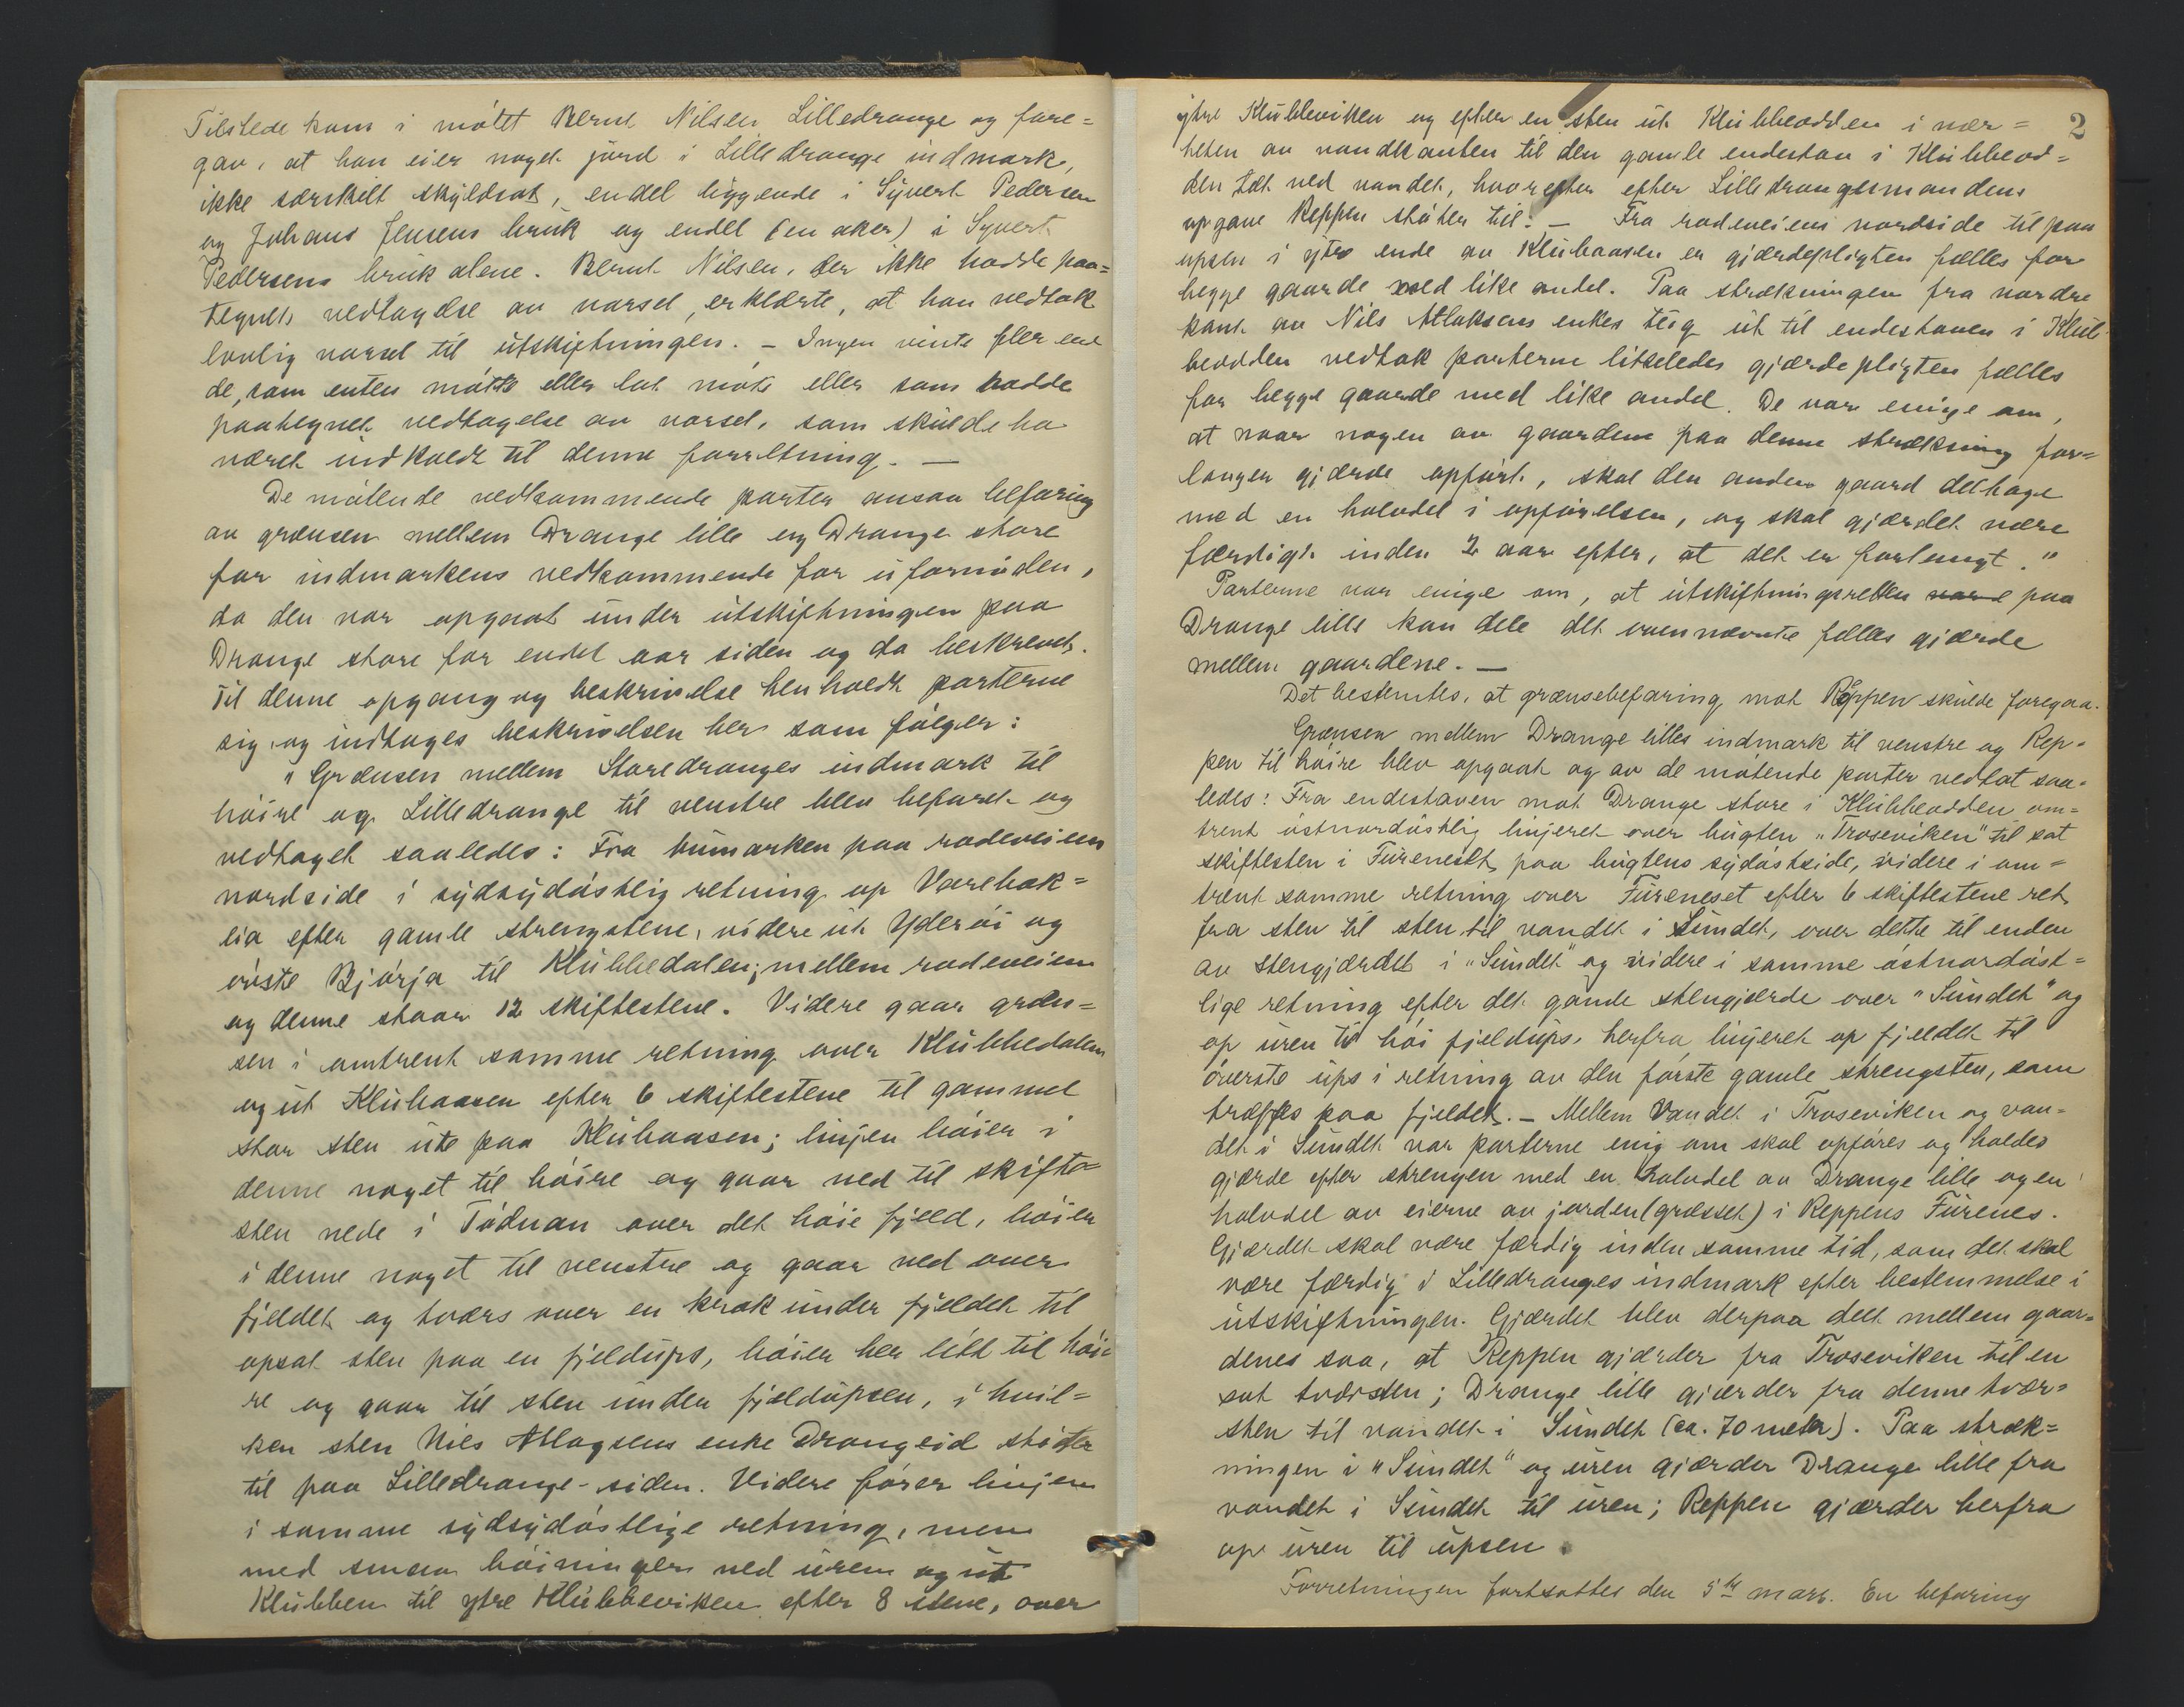 Tilstede kom i møtet Bernt Nilsen Lilledrange og fore=
gav, at han eier noget jord i Lilledrange indmark,
ikke særskilt skyldsat, endel liggende i Syvert Pedersen
og Johans Jensens bruk og endel (en aker) i Syvert
Pedersens bruk alene. Bernt Nilsen, der ikke hadde paa=
tegnet vedtagelse av varsel, erklærte, at han vedtok
lovlig varsel til utskiftningen. – Ingen vinte fler end
de, som enten møtte eller lot møte eller som hadde
paategnet vedtagelse av varsel, som skulde ha
været indkaldt til denne forretning. –
De møtende vedkommende parter ansaa befaring
av grænsen mellem Drange lille og Drange store
for indmarkens vedkommende for ufornøden,
da den var opgaat under utskiftningen paa
Drange store for endel aar siden og da beskrevet.
Til denne opgang og beskrivelse henholdt parterne
sig, og indtages beskrivelsen her som følger:
"Grænsen mellem Storedranges indmark til
høire og Lilledrange til venstre blev befaret og
vedtaget saaledes: Fra bumarken paa rodeveiens
nordside i sydsydøstlig retning op Varehak=
lia efter gamle strengstene, videre ut Yderøi og
øvste Bjørja til Klubbedalen; mellem rodeveien
og denne staar 12 skiftestene. Videre gaar græn=
sen i omtrent samme retning over Klubbedalen
og ut Klubaasen efter 6 skiftestene til gammel
stor sten ute paa Klubaasen; linjen høier i
denne noget til høire og gaar ned til skifte=
sten nede i Tøduan over det høie fjeld, høier
i denne noget til venstre og gaar ned over
fjeldet og tværs over en krok under fjeldet til
opsat sten paa en fjeldups, høier her litt til høi=
re og gaar til sten under fjeldupsen, i hvil=
ken sten Nils Atlagsens enke Drangeid støter
til paa Lilledrange-siden. Videre fører linjen
i samme sydsydøstlige retning, men
med smaa høininger ned uren og ut
Klubben til ytre Klubbeviken efter 8 stene, over
2
ytre Klubbeviken og efter en sten ut Klubbeodden i nær=
heten av vandkanten til den gamle endestav i Klubbeod=
den tæt ved vandet, hvorefter efter Lilledrangsmandens
opgave Reppen støter til. – Fra rodeveiens nordside til paa
upsen i ytre ende av Klubaasen er gjærdepligten fælles for
begge gaarde med like andel. Paa strækningen fra nordre
kant av Nils Atlaksens enkes teig ut til endestaven i Klub
beodden vedtok parterne likeledes gjærdepligten fælles
for begge gaarde med like andel. De var enige om,
at naar nogen av gaardene paa denne strækning for=
langer gjærde opført, skal den anden gaard deltage
med en halvdel i opførelsen, og skal gjærdet være
færdigt inden 2 aar efter, at det er forlangt."
Parterne var enige om, at utskiftningsretten paa
Drange lille kan dele det ovennævnte fælles gjærde
mellem gaardene. –
Det bestemtes, at grænsebefaring mot Reppen skulde foregaa.
Grænsen mellem Drange lilles indmark til venstre og Rep=
pen til høire blev opgaat og av de møtende parter vedtat saa=
ledes: Fra endestaven mot Drange store i Klubbeodden om=
trent østnordøstlig linjeret over bugten "Troseviken" til sat
skiftesten i Fureneset, paa bugtens sydøstside, videre i om=
trent samme retning over Fureneset efter 6 skiftestene ret
fra sten til sten til vandet i Sundet, over dette til enden
av stengjærdet i "Sundet" og videre i samme østnordøst=
lige retning efter det gamle stengjærde over "Sundet" og
op uren til høi fjeldups, herfra linjeret op fjeldet til
øverste ups i retning av den første gamle strengsten, som
træffes paa fjeldet. – Mellem Vandet i Troseviken og van=
det i Sundet var parterne enig om skal opføres og holdes
gjærde efter strengen med en halvdel av Drange lille og en
halvdel av eierne av jorden (græsset) i Reppens Furenes.
Gjærdet skal være færdig inden samme tid, som det skal
være færdig i Lilledranges indmark efter bestemmelse i
utskiftningen. Gjærdet blev derpaa delt mellem gaar=
denes saa, at Reppen gjærder fra Troseviken til en
sat tværsten; Drange lille gjærder fra denne tvær=
sten til vandet i Sundet (ca. 70 meter). Paa stræk=
ningen i "Sundet" og uren gjærder Drange lille fra
vandet i Sundet til uren; Reppen gjærder herfra
op uren til upsen.
Forretningen fortsattes den 5te mars. En befaring